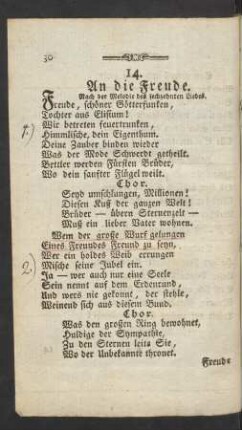 30
14.
An die Freude.
Nach der Melodie des sechzehnten Liedes.
Freude, schöner Götterfunken,
Tochter aus Elisium!
Wir betreten feuertrunken,
1.) Himmlische, dein Eigenthum.
Deine Zauber binden wieder
Was der Mode Schwerdt getheilt.
Bettler werden Fürsten Brüder,
Wo dein sanfter Flügel weilt.
Chor.
Seyd umschlungen, Millionen!
Diesen Kuß der ganzen Welt!
Brüder — übern Sternenzelt —
Muß ein lieber Vater wohnen.
Wem der große Wurf gelungen
Eines Freundes Freund zu seyn,
Wer ein holdes Weib errungen
2.) Mische seine Jubel ein.
Ja — wer auch nur eine Seele
Sein nennt auf dem Erdenrund,
Und wers nie gekonnt, der stehle,
Weinend sich aus diesem Bund.
Chor.
Was den großen Ring bewohnet,
Huldige der Sympathie,
Zu den Sternen leitet Sie,
Wo der Unbekannte thronet.
Freude